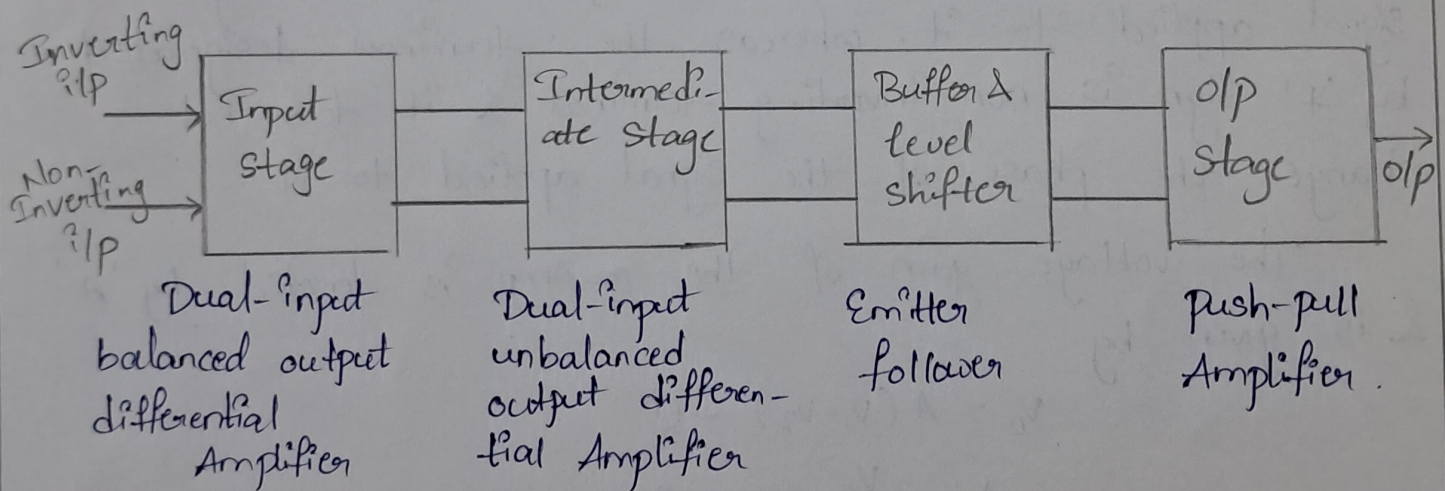 Inverting
i/p
Non-
Inverting
i/p
Input
stage
Intermedi-
ate stage
Buffer &
level
shifter
o/p
stage
o/p
Dual-input
balanced output
differential
Amplifier
Dual-input
unbalanced
output differen-
tial Amplifier
Emitter
follower
push-pull
Amplifier.